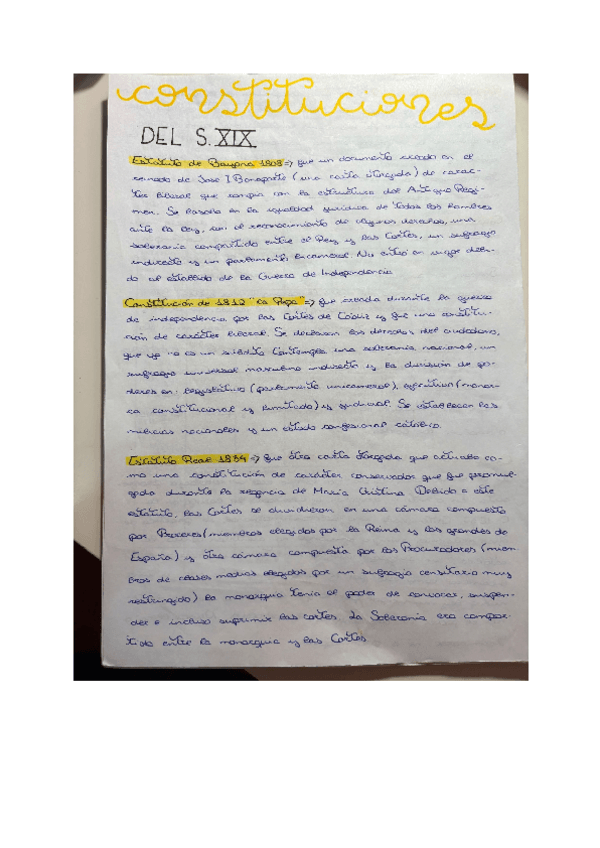 constituciones
DEL S. XIX
Estatuto de Bayona 1808 => fue un documento creado en el
reinado de José I Bonaparte (una carta otorgada) de carác-
ter liberal que rompía con la estructura del Antiguo Régi-
men. Se basaba en la igualdad jurídica de todos los hombres
ante la ley, con el reconocimiento de algunos derechos, una
soberanía compartida entre el Rey y las Cortes, un sufragio
indirecto y un parlamento bicameral. No entró en vigor debi-
do al estallido de la Guerra de Independencia
Constitución de 1812 "La Pepa" => fue creada durante la guerra
de independencia por las Cortes de Cádiz y fue una constitu-
ción de carácter liberal. Se declaran los derechos del ciudadano,
que ya no es un súbdito. Contempla una soberanía nacional, un
sufragio universal masculino indirecto y la división de po-
deres en: legislativo (parlamento unicameral), ejecutivo (monar-
ca constitucional y limitado) y judicial. Se establecen las
milicias nacionales y un estado confesional católico.
Estatuto Real 1834 => fue otra carta otorgada que actuaba co-
mo una constitución de carácter conservador que fue promul-
gada durante la regencia de María Cristina. Debido a este
estatuto, las Cortes se dividieron en una cámara compuesta
por Próceres (miembros elegidos por la Reina y los grandes de
España) y otra cámara compuesta por los Procuradores (miem-
bros de clases medias elegidos por un sufragio censitario muy
restringido) la monarquía tenía el poder de convocar, suspen-
der e incluso suprimir las cortes. La Soberanía era compar-
tida entre la monarquía y las Cortes